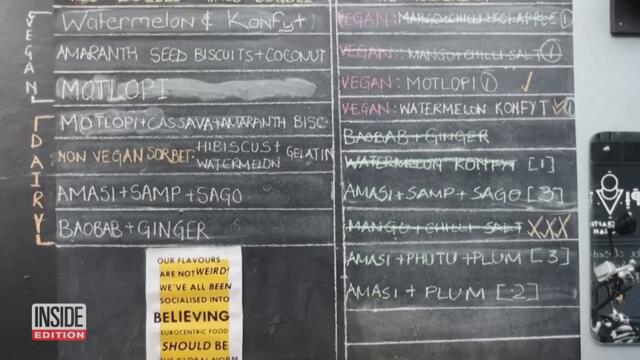 VEGAN
WATERMELON & KONFYT
AMARANTH SEED BISCUITS+COCONUT
MOTLOPI
DAIRY
MOTLOPI+CASSAVA+AMARANTH BISC.
NON VEGAN SORBET: HIBISCUS+ WATERMELON GELATIN
AMASI+SAMP+SAGO
BAOBAB+GINGER
VEGAN: MANGO+CHILLI APPLE 1
VEGAN: MANGO+CHILLI SALT 1
VEGAN: MOTLOPI 1 ✓
VEGAN: WATERMELON KONFYT ✓ 1
BAOBAB+GINGER
WATERMELON KONFYT [1]
AMASI+SAMP+SAGO [3]
MANGO+CHILLI SALT XXX
AMASI+PHUTU+PLUM [3]
AMASI+PLUM [2]
OUR FLAVOURS
ARE NOT WEIRD!
WE'VE ALL BEEN
SOCIALISED INTO
BELIEVING
EUROCENTRIC FOOD
SHOULD BE
THE GLOBAL NORM
INSIDE
EDITION